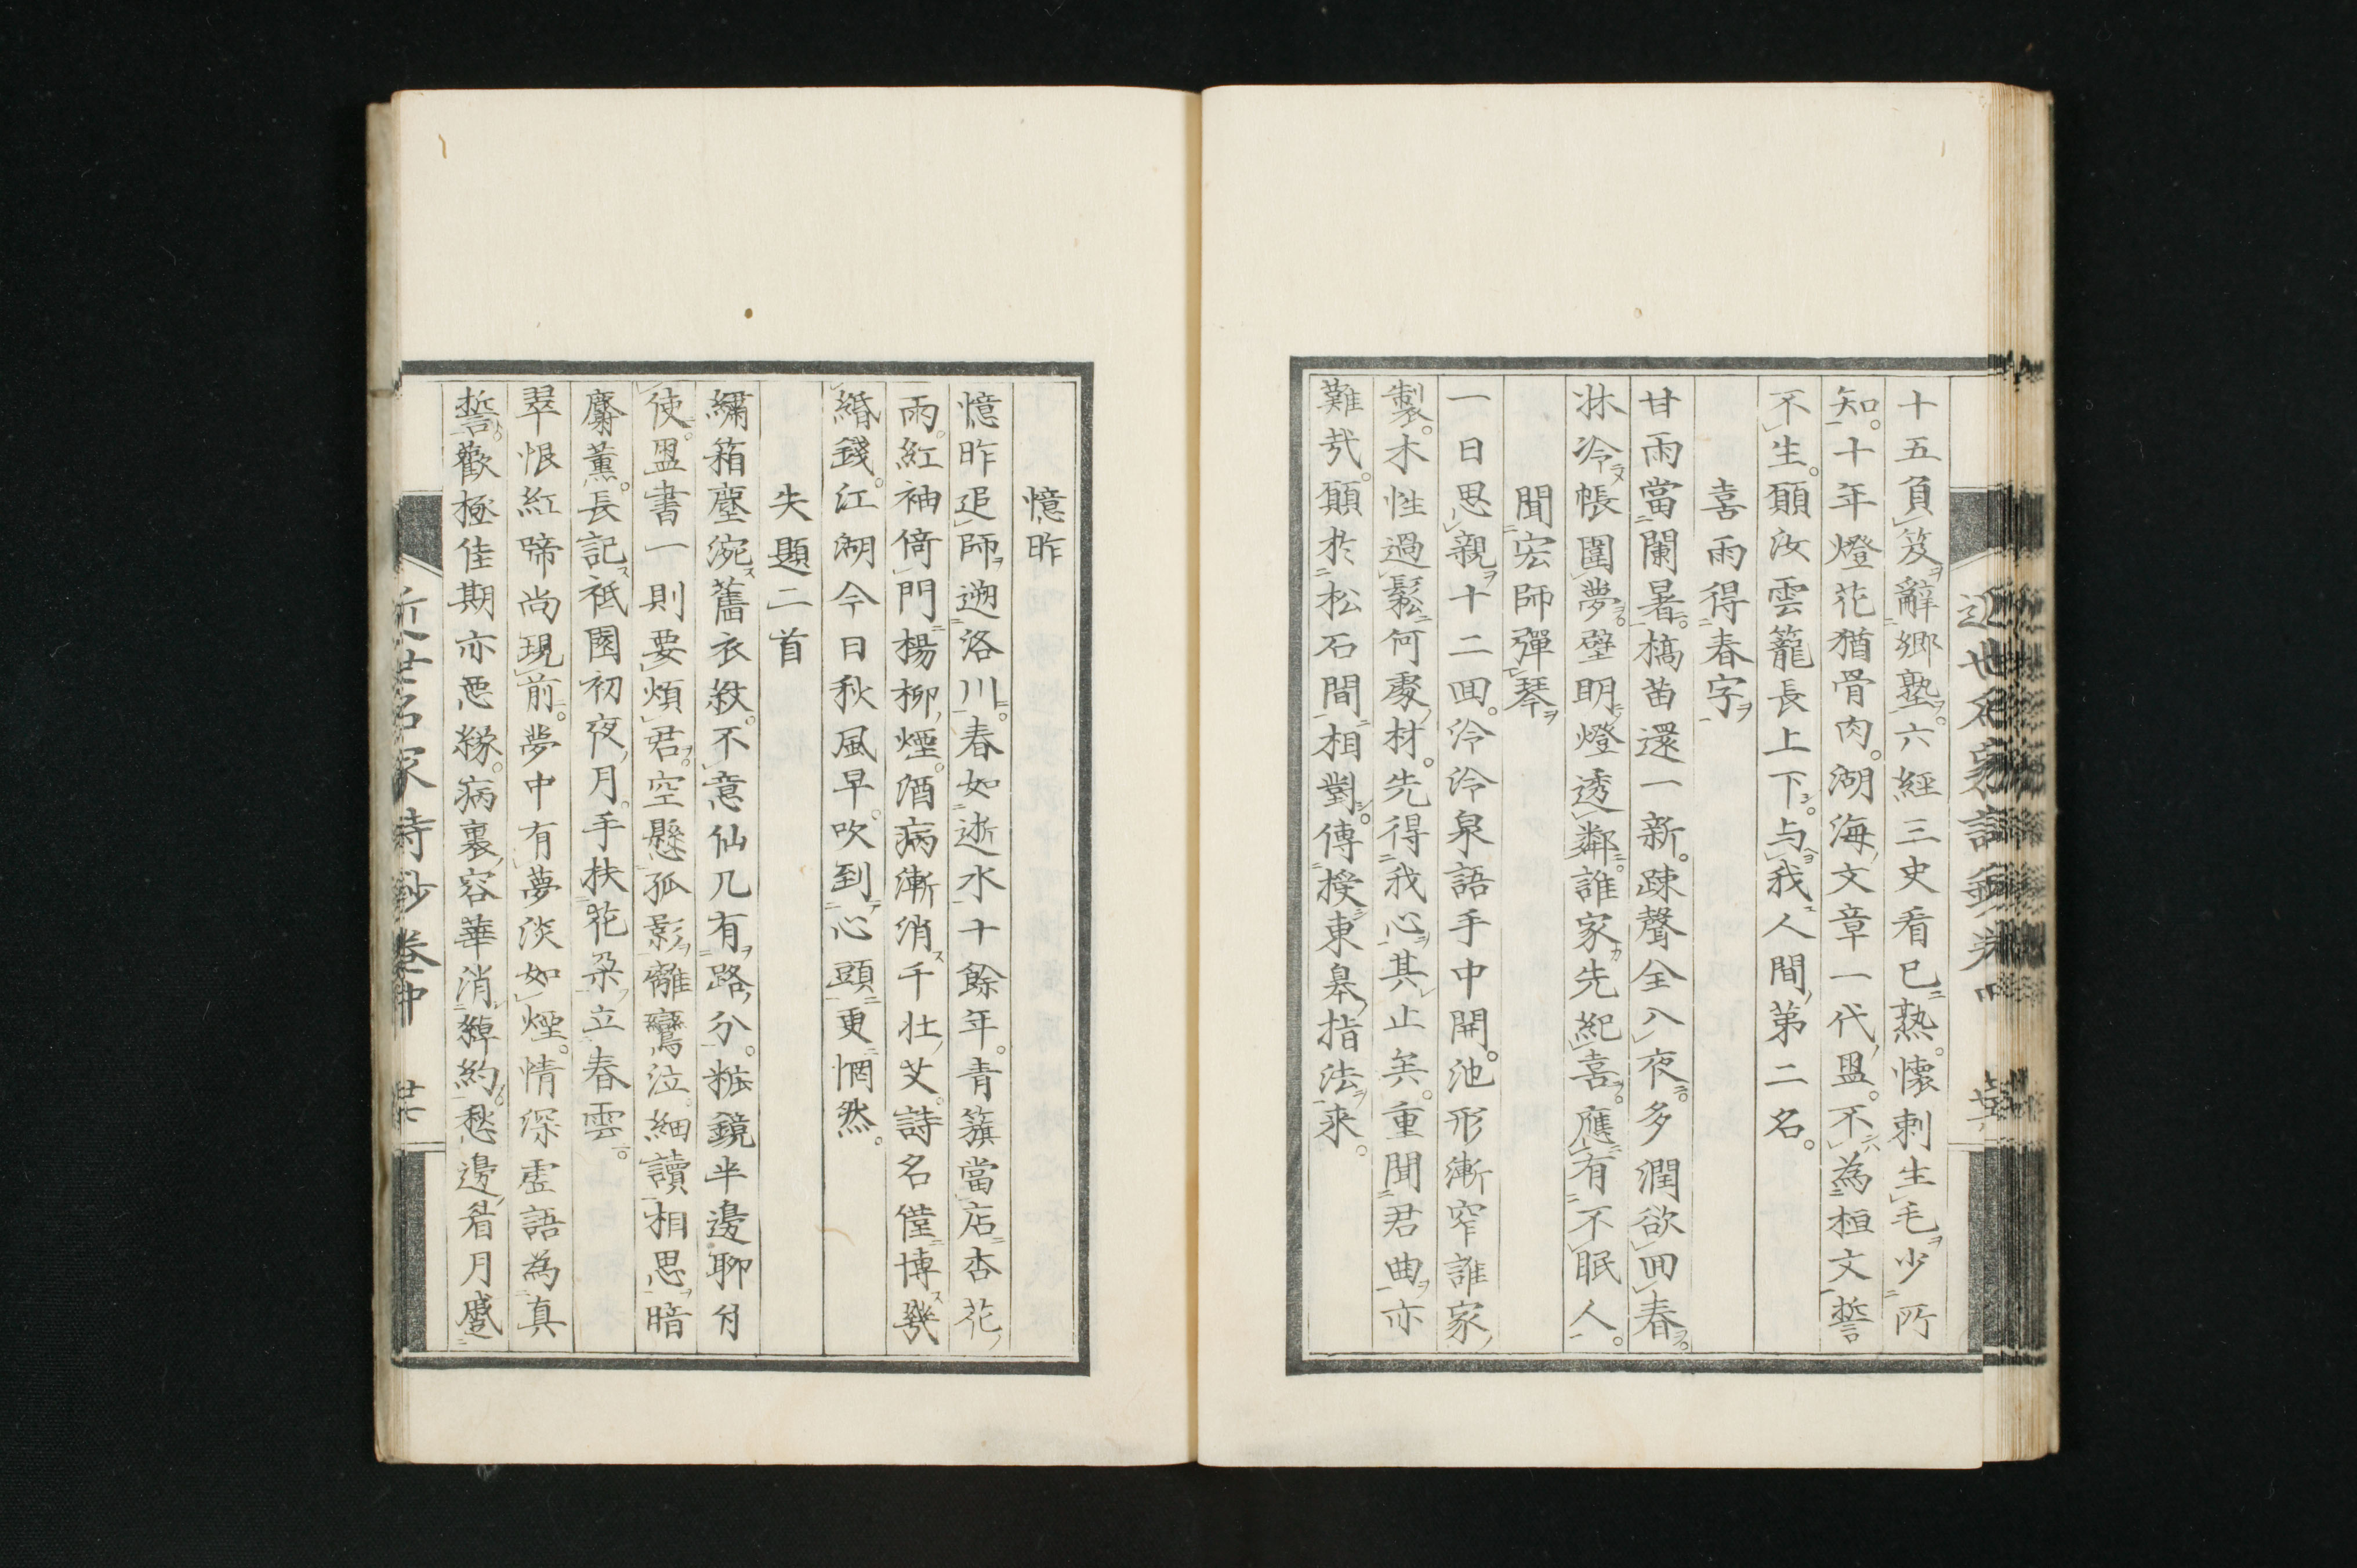 十五負笈辭鄉塾。六經三史看已熟。懷刺生毛少所
知。十年燈花猶骨肉。湖海文章一代盟。不為桓文誓
不生。願汝雲龍長上下。与我人間第二名。
喜雨得春字
甘雨當闌暑。槁苗還一新。疎聲全入夜。多潤欲回春。
牀冷帳圍夢。壁明燈透鄰。誰家先紀喜。應有不眠人。
聞宏師彈琴
一日思親十二回。泠泠泉語手中開。池形漸窄誰家
製。木性過鬆何處材。先得我心其止矣。重聞君曲亦
難哉。願於松石間相對。傳授東皋指法來。
近世名家詩鈔 卷中
憶昨
憶昨追師遡洛川。春如逝水十餘年。青籏當店杏花
雨。紅袖倚門楊柳煙。酒病漸消千壯艾。詩名僅博幾
緡錢。江湖今日秋風早。吹到心頭更惘然。
失題二首
繡箱塵涴舊衣紋。不意仙凡有路分。粧鏡半邊聊自
使。盟書一則要煩君。空懸孤影離鸞泣。細讀相思暗
麝薰。長記祗園初夜月。手扶花朶立春雲。
翠恨紅啼尚現前。夢中有夢淡如煙。情深虛語為真
誓。歡極佳期亦惡緣。病裏容華消綽約。愁邊眉月蹙
近世名家詩鈔 卷中